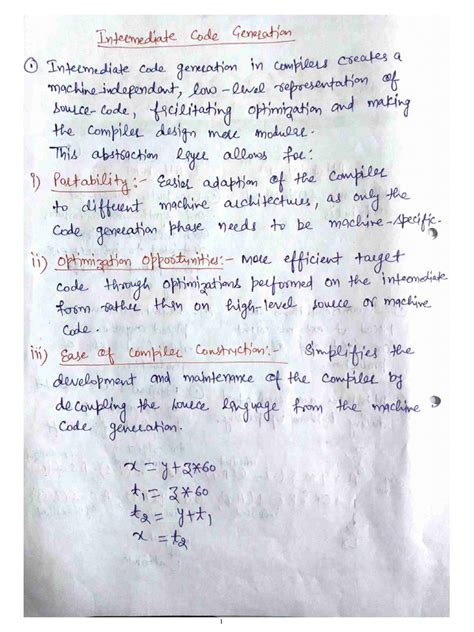 Intermediate Code Generation
① Intermediate code generation in compilers creates a
machine-independent, low-level representation of
source-code, facilitating optimization and making
the compiler design more modular.
This abstraction layer allows for:
i) Portability:- Easier adaption of the compiler
to different machine architectures, as only the
code generation phase needs to be machine-specific.
ii) Optimization Opportunities:- More efficient target
code through optimizations performed on the intermediate
form rather then on high-level source or machine
code.
iii) Ease of Compiler Construction:- Simplifies the
development and maintenance of the compiler by
decoupling the source language from the machine
code generation.
x = y+3*60
t1 = 3*60
t2 = y+t1
x = t2
1